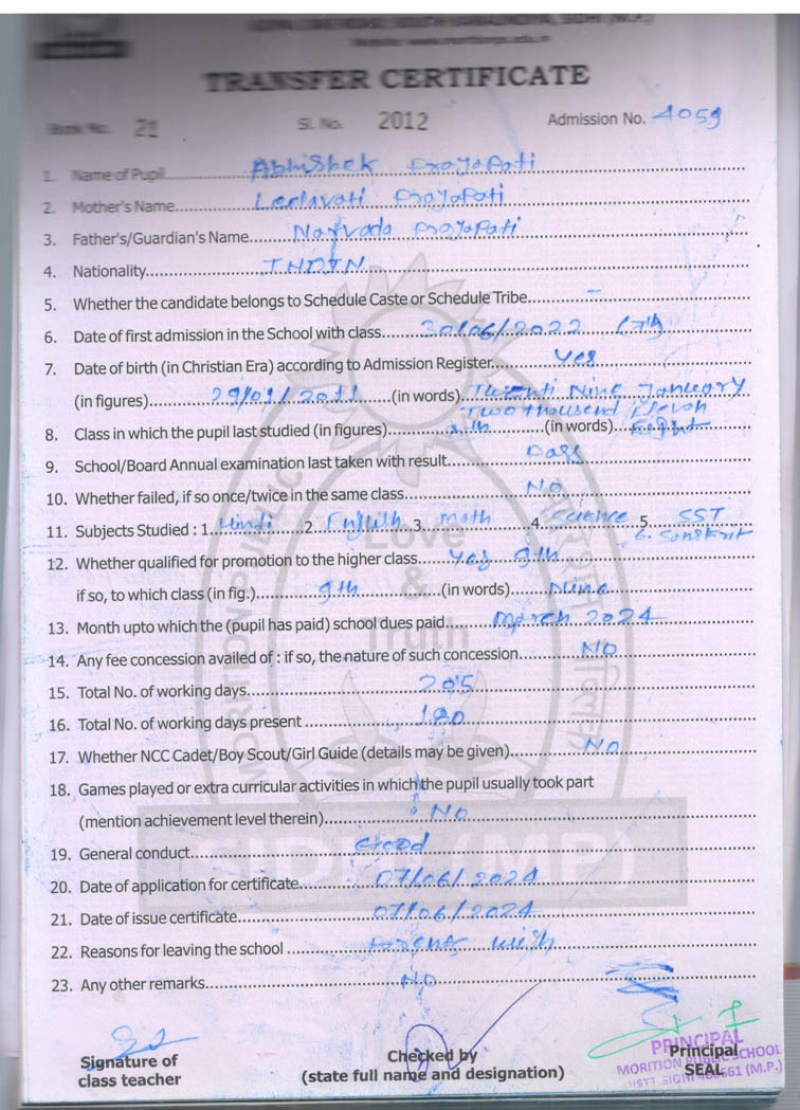 TRANSFER CERTIFICATE
Book No. 21 Sl. No. 2012 Admission No. 4059
1. Name of Pupil Abhishek Prajapati
2. Mother's Name Leelavati Prajapati
3. Father's/Guardian's Name Narvada Prajapati
4. Nationality INDIN
5. Whether the candidate belongs to Schedule Caste or Schedule Tribe –
6. Date of first admission in the School with class 30/06/2022 (7th)
7. Date of birth (in Christian Era) according to Admission Register Yes
(in figures) 29/01/2011 (in words) Twenti Nine Januery
Two thousend Eleven
8. Class in which the pupil last studied (in figures) (in words) Eight
9. School/Board Annual examination last taken with result Pass
10. Whether failed, if so once/twice in the same class No
11. Subjects Studied : 1. Hindi 2. English 3. math 4. Science 5. SST
6. Sanskrit
12. Whether qualified for promotion to the higher class Yes 9th
if so, to which class (in fig.) 9th (in words) Nine
13. Month upto which the (pupil has paid) school dues paid March 2024
14. Any fee concession availed of : if so, the nature of such concession NO
15. Total No. of working days 205
16. Total No. of working days present 180
17. Whether NCC Cadet/Boy Scout/Girl Guide (details may be given) No
18. Games played or extra curricular activities in which the pupil usually took part
(mention achievement level therein) No
19. General conduct Good
20. Date of application for certificate 07/06/2024
21. Date of issue certificate 07/06/2024
22. Reasons for leaving the school Parents wish
23. Any other remarks NO
Signature of
class teacher
Checked by
(state full name and designation)
Principal
SEAL
PRINCIPAL
MORITION PUBLIC SCHOOL
Love
&
Truth
SIDHI (MP)